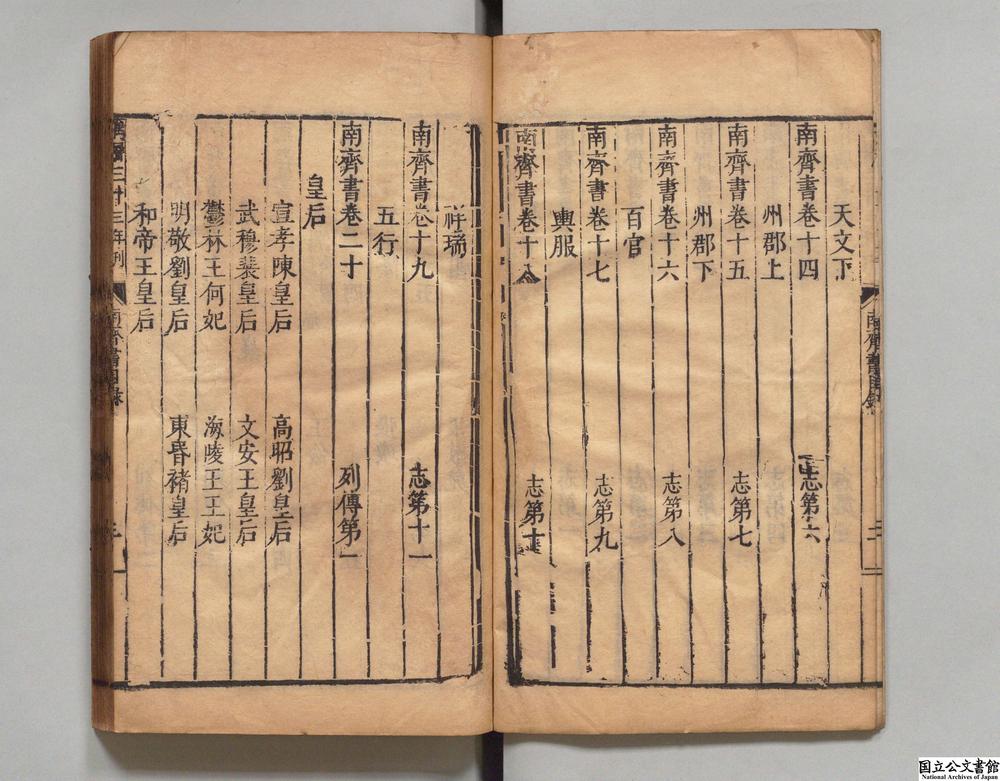 天文下
南齊書卷十四 志第六
州郡上
南齊書卷十五 志第七
州郡下
南齊書卷十六 志第八
百官
南齊書卷十七 志第九
輿服
南齊書卷十八 志第十
祥瑞
南齊書卷十九 志第十一
五行
南齊書卷二十 列傳第一
皇后
宣孝陳皇后 高昭劉皇后
武穆裴皇后 文安王皇后
鬱林王何妃 海陵王王妃
明敬劉皇后 東昏褚皇后
和帝王皇后
萬曆三十三年刊 南齊書目錄 三
南齊書目錄 三
国立公文書館
National Archives of Japan